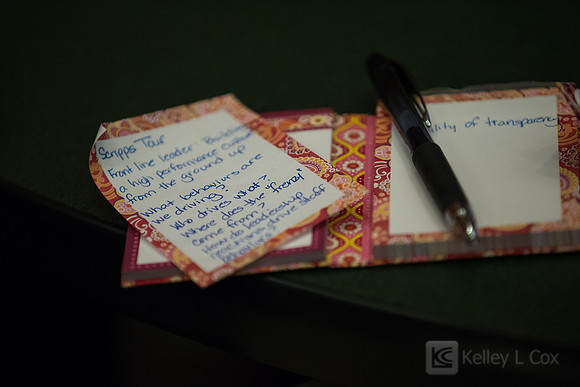 Scripps Tour
Front line leader - Building
a high performance culture
from the ground up
What behaviors are
we driving?
Who drives what?
Where does the "frenzy"
come from?
How do leadership
reactions drive staff
behaviors?
ality of transparency
KLC Kelley L Cox